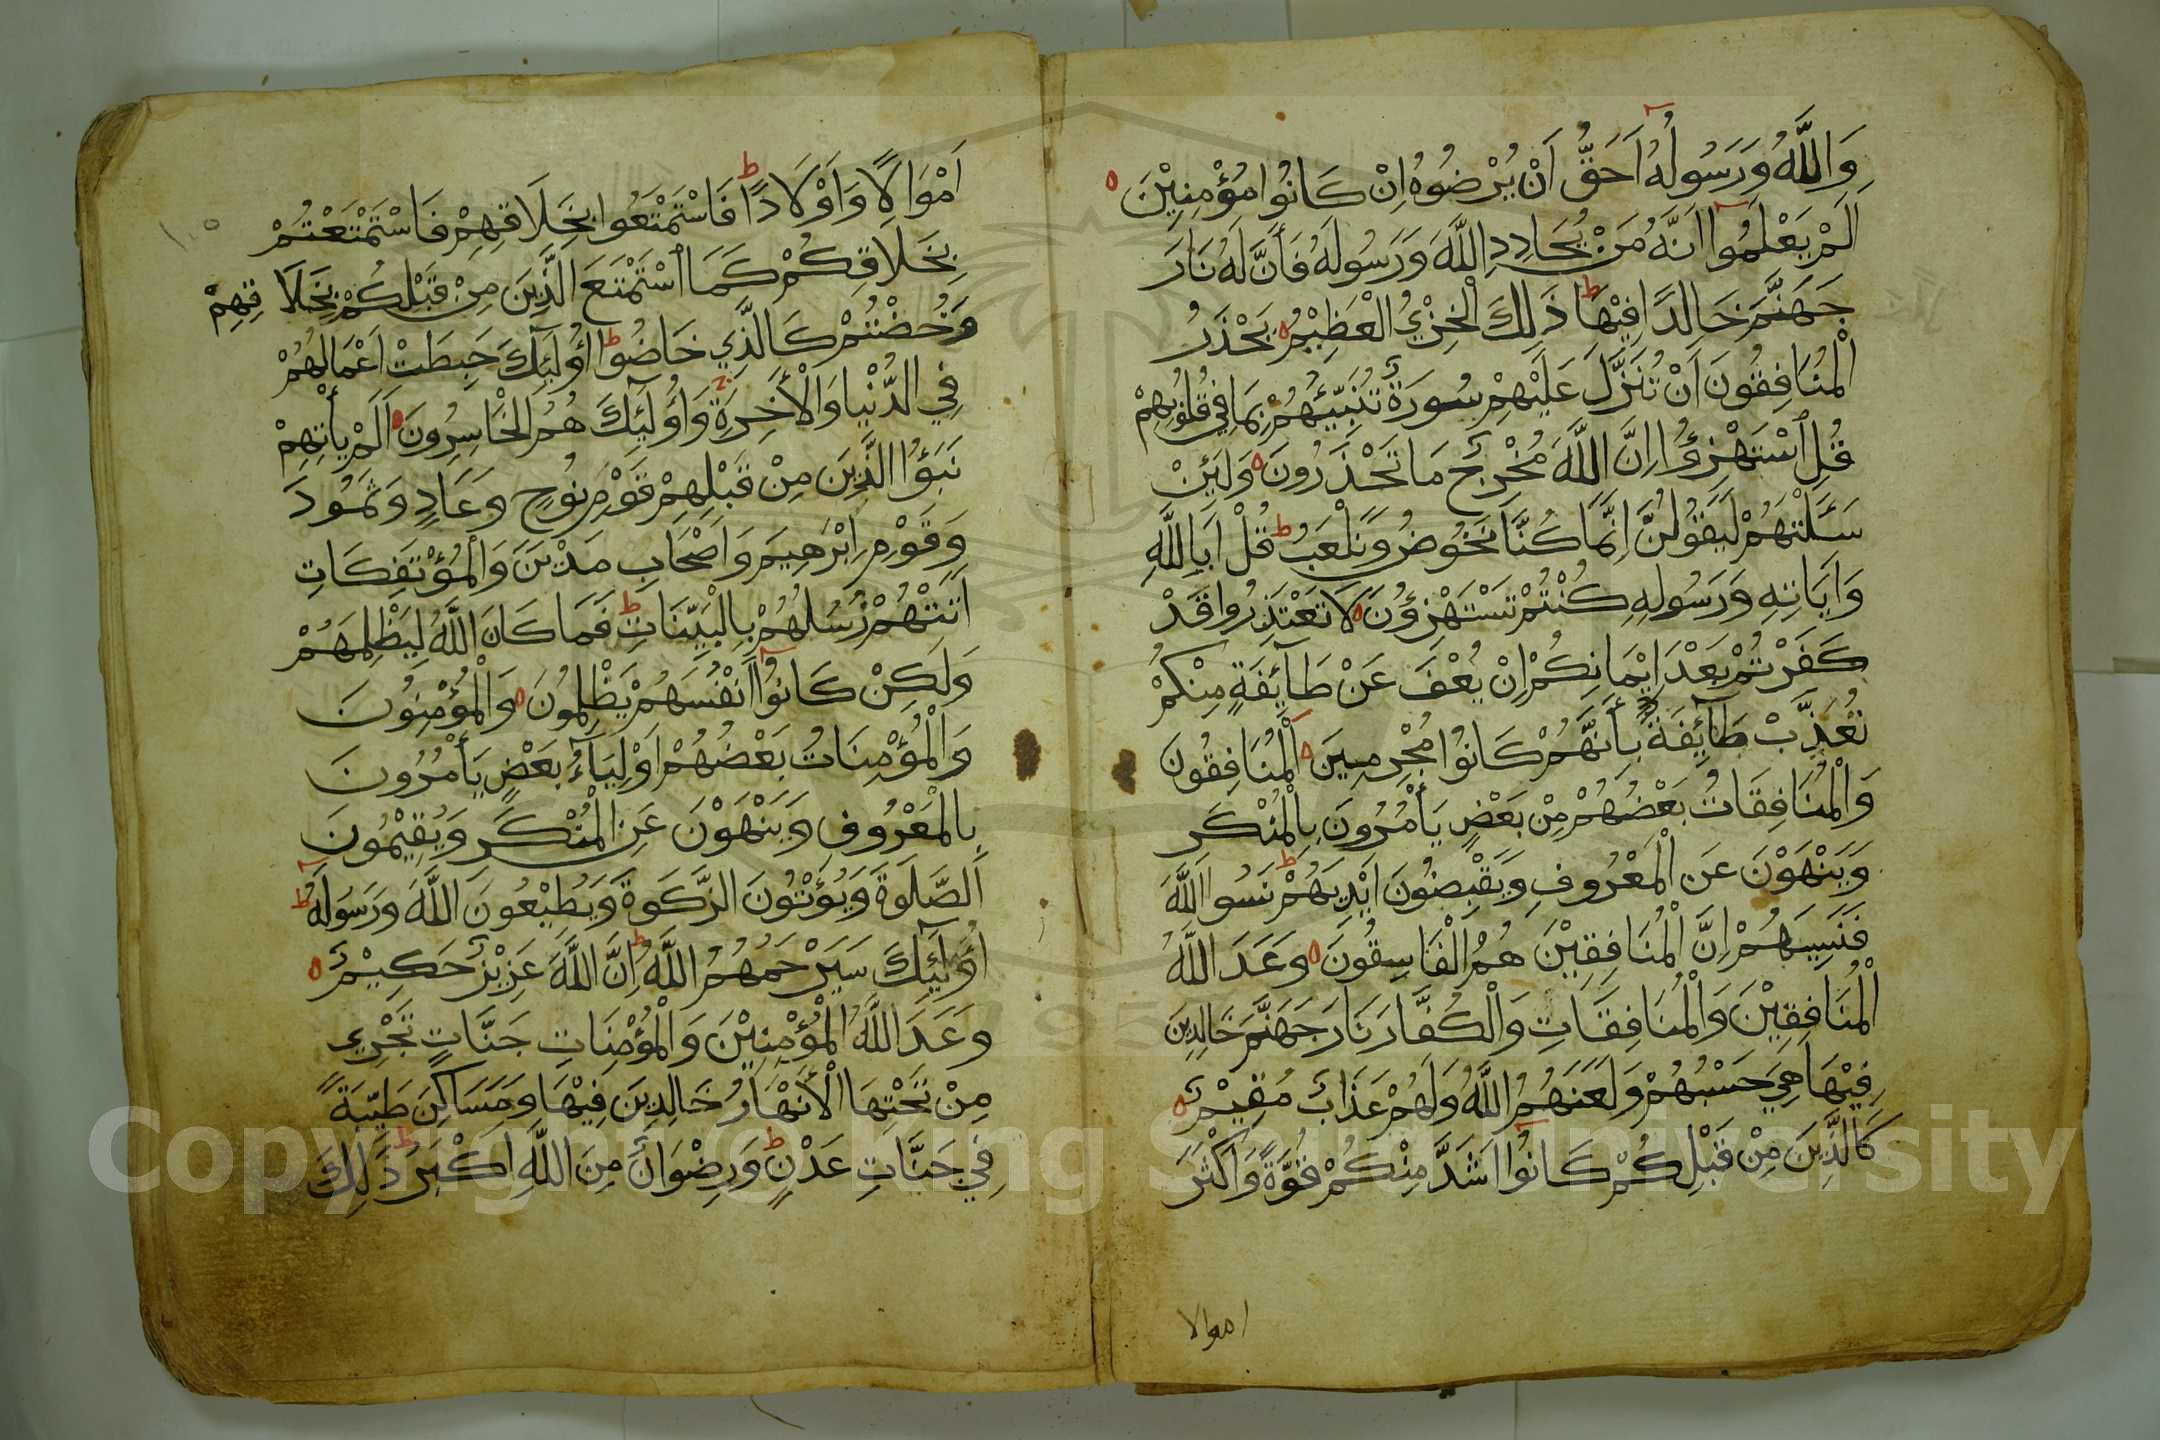 وَاللَّهُ وَرَسُولُهُ اَحَقُّ اَنْ يُرْضُوهُ اِنْ كَانُوا مُؤْمِنِيْنَ ه
اَلَمْ يَعْلَمُوا اَنَّهُ مَنْ يُحَادِدِ اللَّهَ وَرَسُولَهُ فَأَنَّ لَهُ نَارَ
جَهَنَّمَ خَالِدًا فِيْهَا ط ذَلِكَ الْخِزْيُ الْعَظِيْمُ ه يَحْذَرُ
الْمُنَافِقُونَ اَنْ تُنَزَّلَ عَلَيْهِمْ سُورَةٌ تُنَبِّئُهُمْ بِمَا فِي قُلُوبِهِمْ
قُلِ اسْتَهْزِؤُا اِنَّ اللَّهَ مُخْرِجٌ مَا تَحْذَرُونَ ه وَلَئِنْ
سَئَلْتَهُمْ لَيَقُولُنَّ اِنَّمَا كُنَّا نَخُوضُ وَنَلْعَبُ ط قُلْ اَبِاللَّهِ
وَايَاتِهِ وَرَسُولِهِ كُنْتُمْ تَسْتَهْزِؤُنَ ه لَا تَعْتَذِرُوا قَدْ
كَفَرْتُمْ بَعْدَ اِيْمَانِكُمْ اِنْ يُعْفَ عَنْ طَآئِفَةٍ مِنْكُمْ
نُعَذِّبْ طَآئِفَةً بِأَنَّهُمْ كَانُوا مُجْرِمِينَ ه اَلْمُنَافِقُونَ
وَالْمُنَافِقَاتُ بَعْضُهُمْ مِنْ بَعْضٍ يَأْمُرُونَ بِالْمُنْكَرِ
وَيَنْهَوْنَ عَنِ الْمَعْرُوفِ وَيَقْبِضُونَ اَيْدِيَهُمْ ط نَسُوا اللَّهَ
فَنَسِيَهُمْ اِنَّ الْمُنَافِقِيْنَ هُمُ الْفَاسِقُونَ ه وَعَدَ اللَّهُ
الْمُنَافِقِيْنَ وَالْمُنَافِقَاتِ وَالْكُفَّارَ نَارَ جَهَنَّمَ خَالِدِينَ
فِيْهَا هِيَ حَسْبُهُمْ وَلَعَنَهُمُ اللَّهُ وَلَهُمْ عَذَابٌ مُقِيْمٌ ه
كَالَّذِينَ مِنْ قَبْلِكُمْ كَانُوا اَشَدَّ مِنْكُمْ قُوَّةً وَاَكْثَرَ
اموالا
اَمْوَالًا وَاَوْلَادًا ط فَاسْتَمْتَعُوا بِخَلَاقِهِمْ فَاسْتَمْتَعْتُمْ
بِخَلَاقِكُمْ كَمَا اسْتَمْتَعَ الَّذِينَ مِنْ قَبْلِكُمْ بِخَلَاقِهِمْ
وَخُضْتُمْ كَالَّذِي خَاضُوا ط اُولَئِكَ حَبِطَتْ اَعْمَالُهُمْ
فِي الدُّنْيَا وَالْأَخِرَةِ وَاُولَئِكَ هُمُ الْخَاسِرُونَ ه اَلَمْ يَأْتِهِمْ
نَبَؤُا الَّذِينَ مِنْ قَبْلِهِمْ قَوْمِ نُوحٍ وَعَادٍ وَثَمُودَ
وَقَوْمِ اِبْرَهِيمَ وَاَصْحَابِ مَدْيَنَ وَالْمُؤْتَفِكَاتِ
اَتَتْهُمْ رُسُلُهُمْ بِالْبَيِّنَاتِ ط فَمَا كَانَ اللَّهُ لِيَظْلِمَهُمْ
وَلَكِنْ كَانُوا اَنْفُسَهُمْ يَظْلِمُونَ ه وَالْمُؤْمِنُونَ
وَالْمُؤْمِنَاتُ بَعْضُهُمْ اَوْلِيَآءُ بَعْضٍ يَأْمُرُونَ
بِالْمَعْرُوفِ وَيَنْهَوْنَ عَنِ الْمُنْكَرِ وَيُقِيْمُونَ
الصَّلَوةَ وَيُؤْتُونَ الزَّكَوةَ وَيُطِيْعُونَ اللَّهَ وَرَسُولَهُ ط
اُولَئِكَ سَيَرْحَمُهُمُ اللَّهُ ط اِنَّ اللَّهَ عَزِيْزٌ حَكِيْمٌ ه
وَعَدَ اللَّهُ الْمُؤْمِنِيْنَ وَالْمُؤْمِنَاتِ جَنَّاتٍ تَجْرِي
مِنْ تَحْتِهَا الْأَنْهَارُ خَالِدِينَ فِيْهَا وَمَسَاكِنَ طَيِّبَةً
فِي جَنَّاتِ عَدْنٍ ط وَرِضْوَانٌ مِنَ اللَّهِ اَكْبَرُ ط ذَلِكَ
Copyright © King Saud University